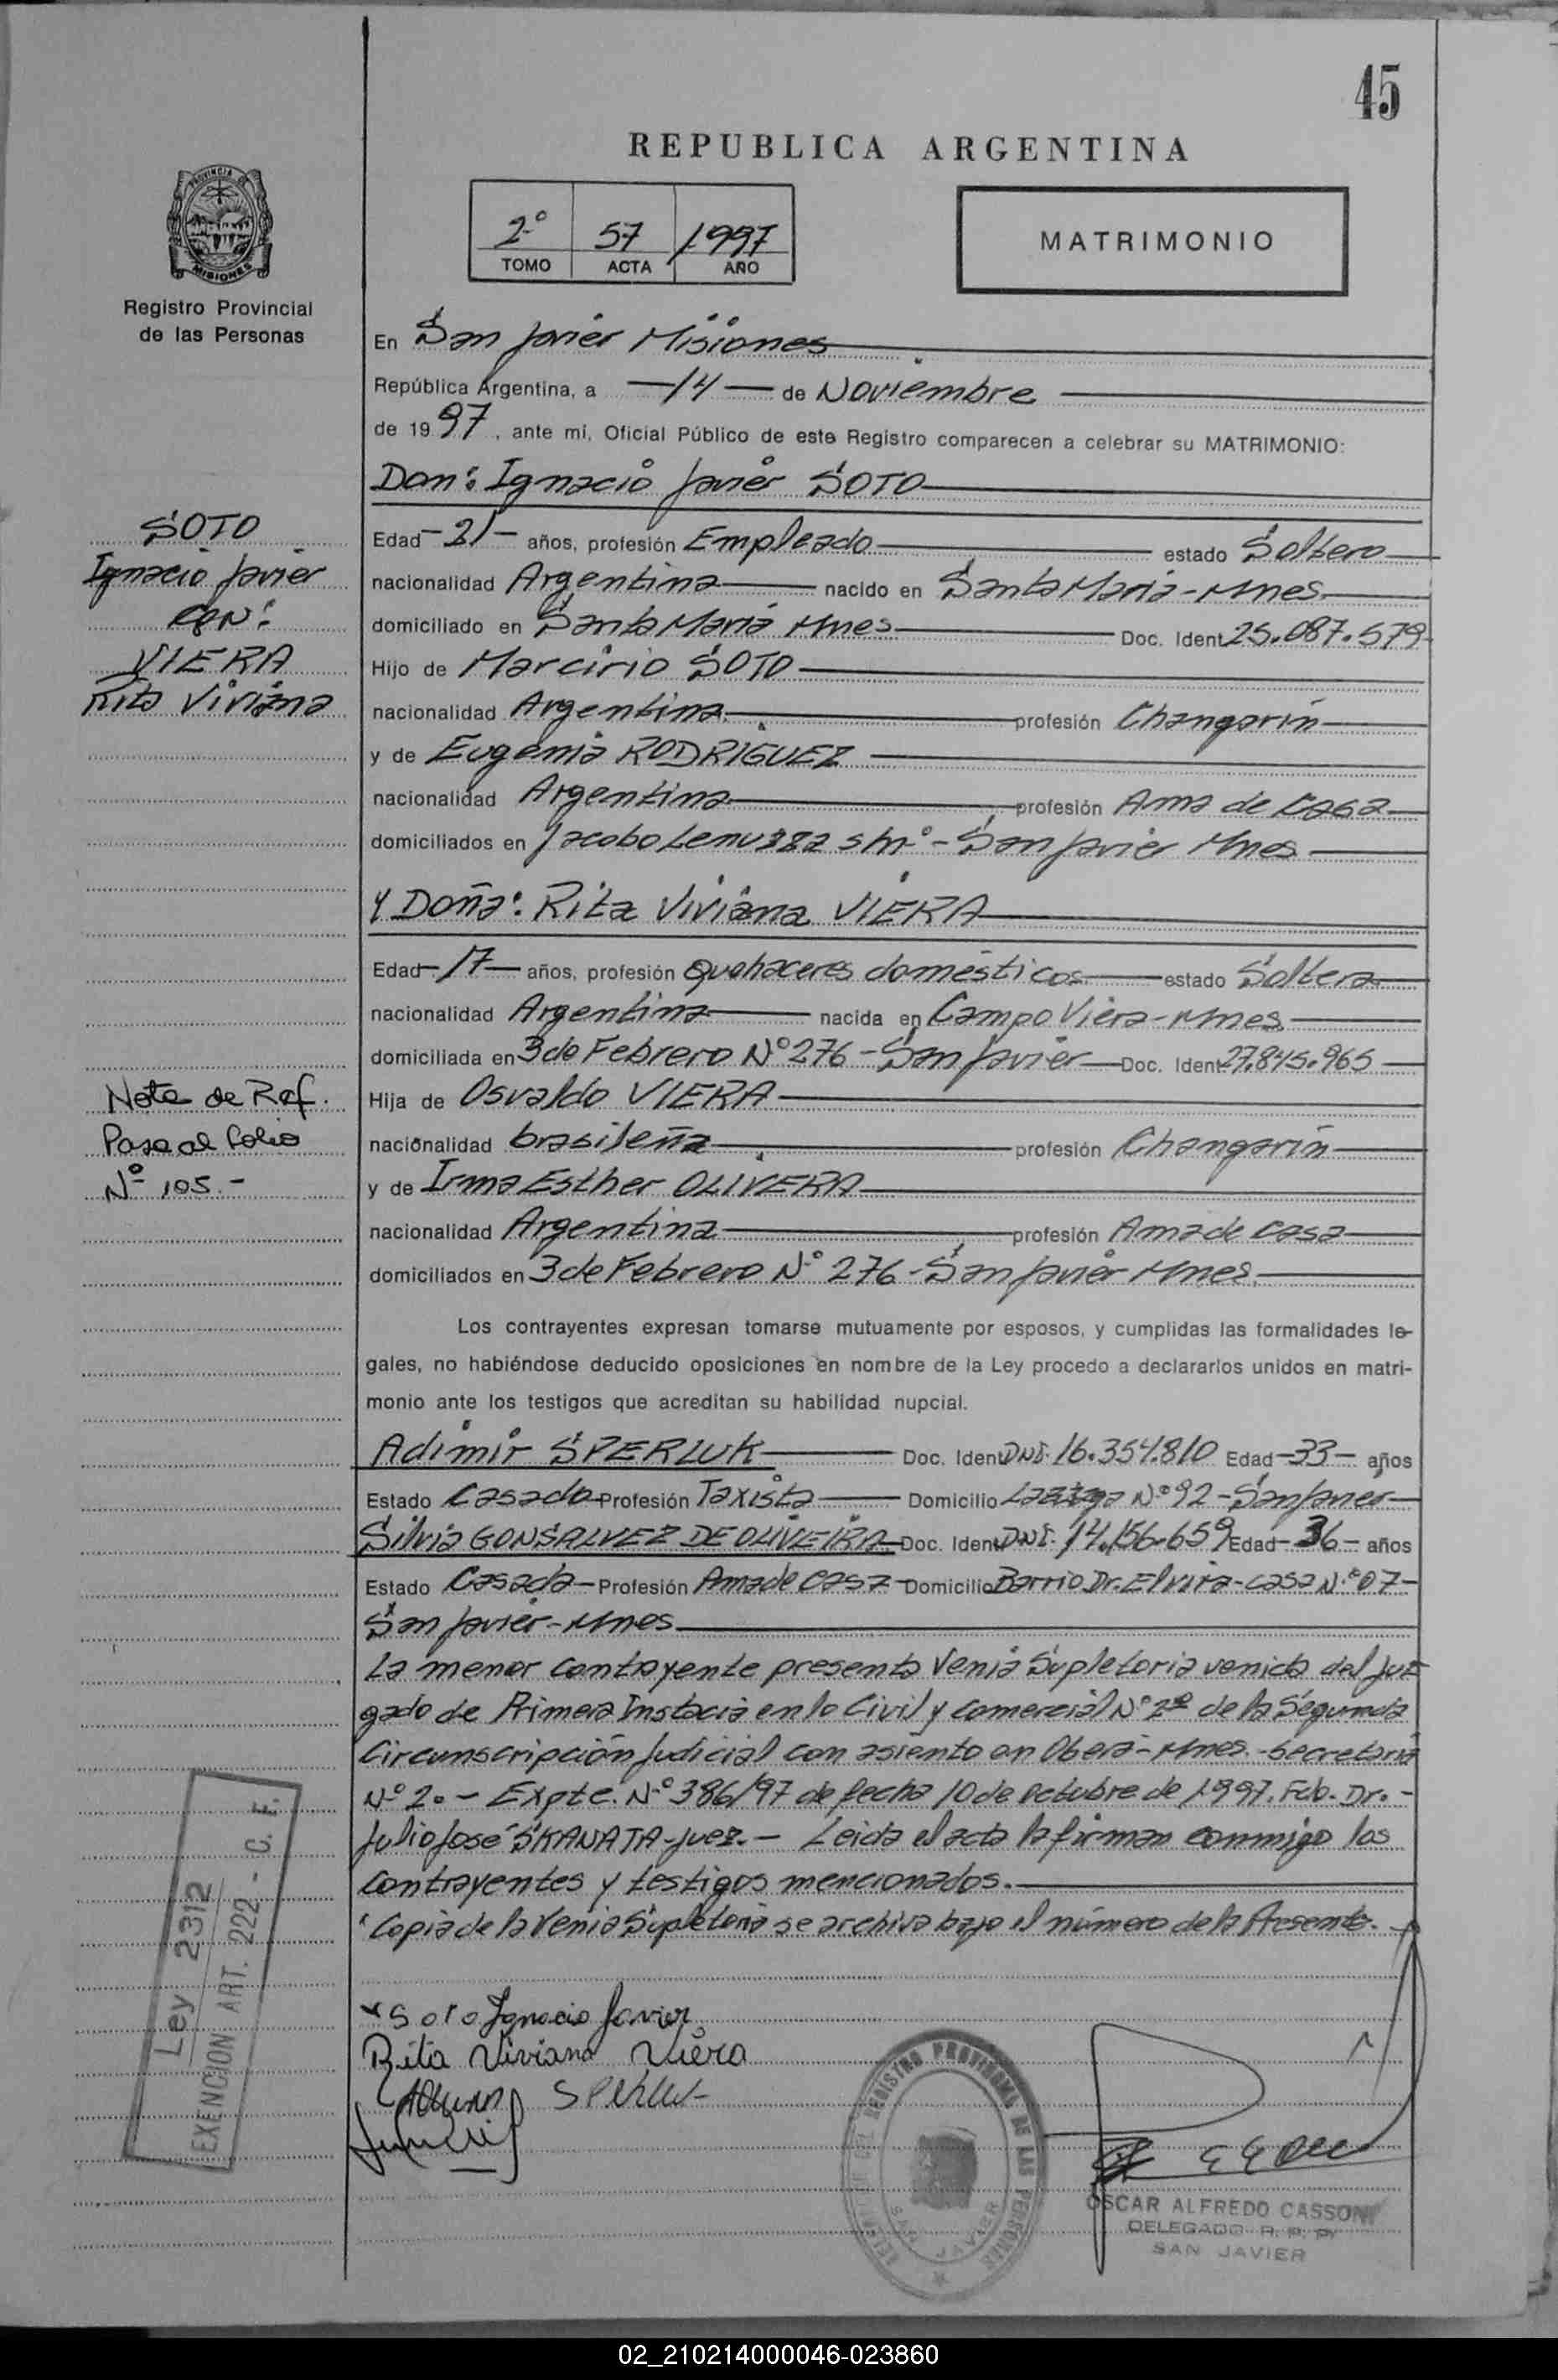 45
REPUBLICA ARGENTINA
2º 57 1997
TOMO ACTA AÑO
MATRIMONIO
PROVINCIA DE
MISIONES
Registro Provincial
de las Personas
En San Javier Misiones
República Argentina, a -14- de Noviembre
de 1997, ante mí, Oficial Público de este Registro comparecen a celebrar su MATRIMONIO:
Don: Ignacio Javier SOTO
Edad -21- años, profesión Empleado estado Soltero
nacionalidad Argentina nacido en Santa María - Mnes
domiciliado en Santa María Mnes Doc. Ident 25.087.579
Hijo de Marcirio SOTO
nacionalidad Argentina profesión Changarín
y de Eugenia RODRIGUEZ
nacionalidad Argentina profesión Ama de casa
domiciliados en Jacobo s/nº - San Javier Mnes
Y Doña: Rita Viviana VIERA
Edad -17- años, profesión Quehaceres domésticos estado Soltera
nacionalidad Argentina nacida en Campo Viera - Mnes
domiciliada en 3 de Febrero Nº 276 - San Javier Doc. Ident 27.845.965
Hija de Osvaldo VIERA
nacionalidad brasileña profesión Changarín
y de Irma Esther OLIVERA
nacionalidad Argentina profesión Ama de casa
domiciliados en 3 de Febrero Nº 276 - San Javier Mnes.
Los contrayentes expresan tomarse mutuamente por esposos, y cumplidas las formalidades le-
gales, no habiéndose deducido oposiciones en nombre de la Ley procedo a declararlos unidos en matri-
monio ante los testigos que acreditan su habilidad nupcial.
Adimir SPERLUK Doc. Ident DNI. 16.354.810 Edad -33- años
Estado Casado Profesión Taxista Domicilio Nº 92 - San Javier
Silvia GONSALVEZ DE OLIVEIRA Doc. Ident DNI. 14.156.659 Edad -36- años
Estado Casada - Profesión Ama de casa - Domicilio Barrio Dr. Elvira - casa Nº 07 -
San Javier - Mnes
La menor contrayente presenta Venia Supletoria venida del Juz
gado de Primera Instacia en lo Civil y Comercial Nº 2º de la Segunda
Circunscripción Judicial con asiento en Oberá - Mnes. - Secretaría
Nº 2. - Expte. Nº 386/97 de fecha 10 de Octubre de 1997. Fdo. Dr. -
Julio José SKANATA - Juez. - Leida el acta la firman conmigo los
contrayentes y testigos mencionados.
Copia de la Venia Supletoria se archiva bajo el número de la Presente.
SOTO
Ignacio Javier
CON:
VIERA
Rita Viviana
Nota de Ref.
Pasa al folio
Nº 105. -
Ley 2312
EXENCION ART. 222 - C. F.
x Soto Ignacio Javier
Rita Viviana Viera
REGISTRO PROVINCIAL DE LAS PERSONAS
SAN JAVIER
OSCAR ALFREDO CASSONI
DELEGADO R. P. P.
SAN JAVIER
02_210214000046-023860